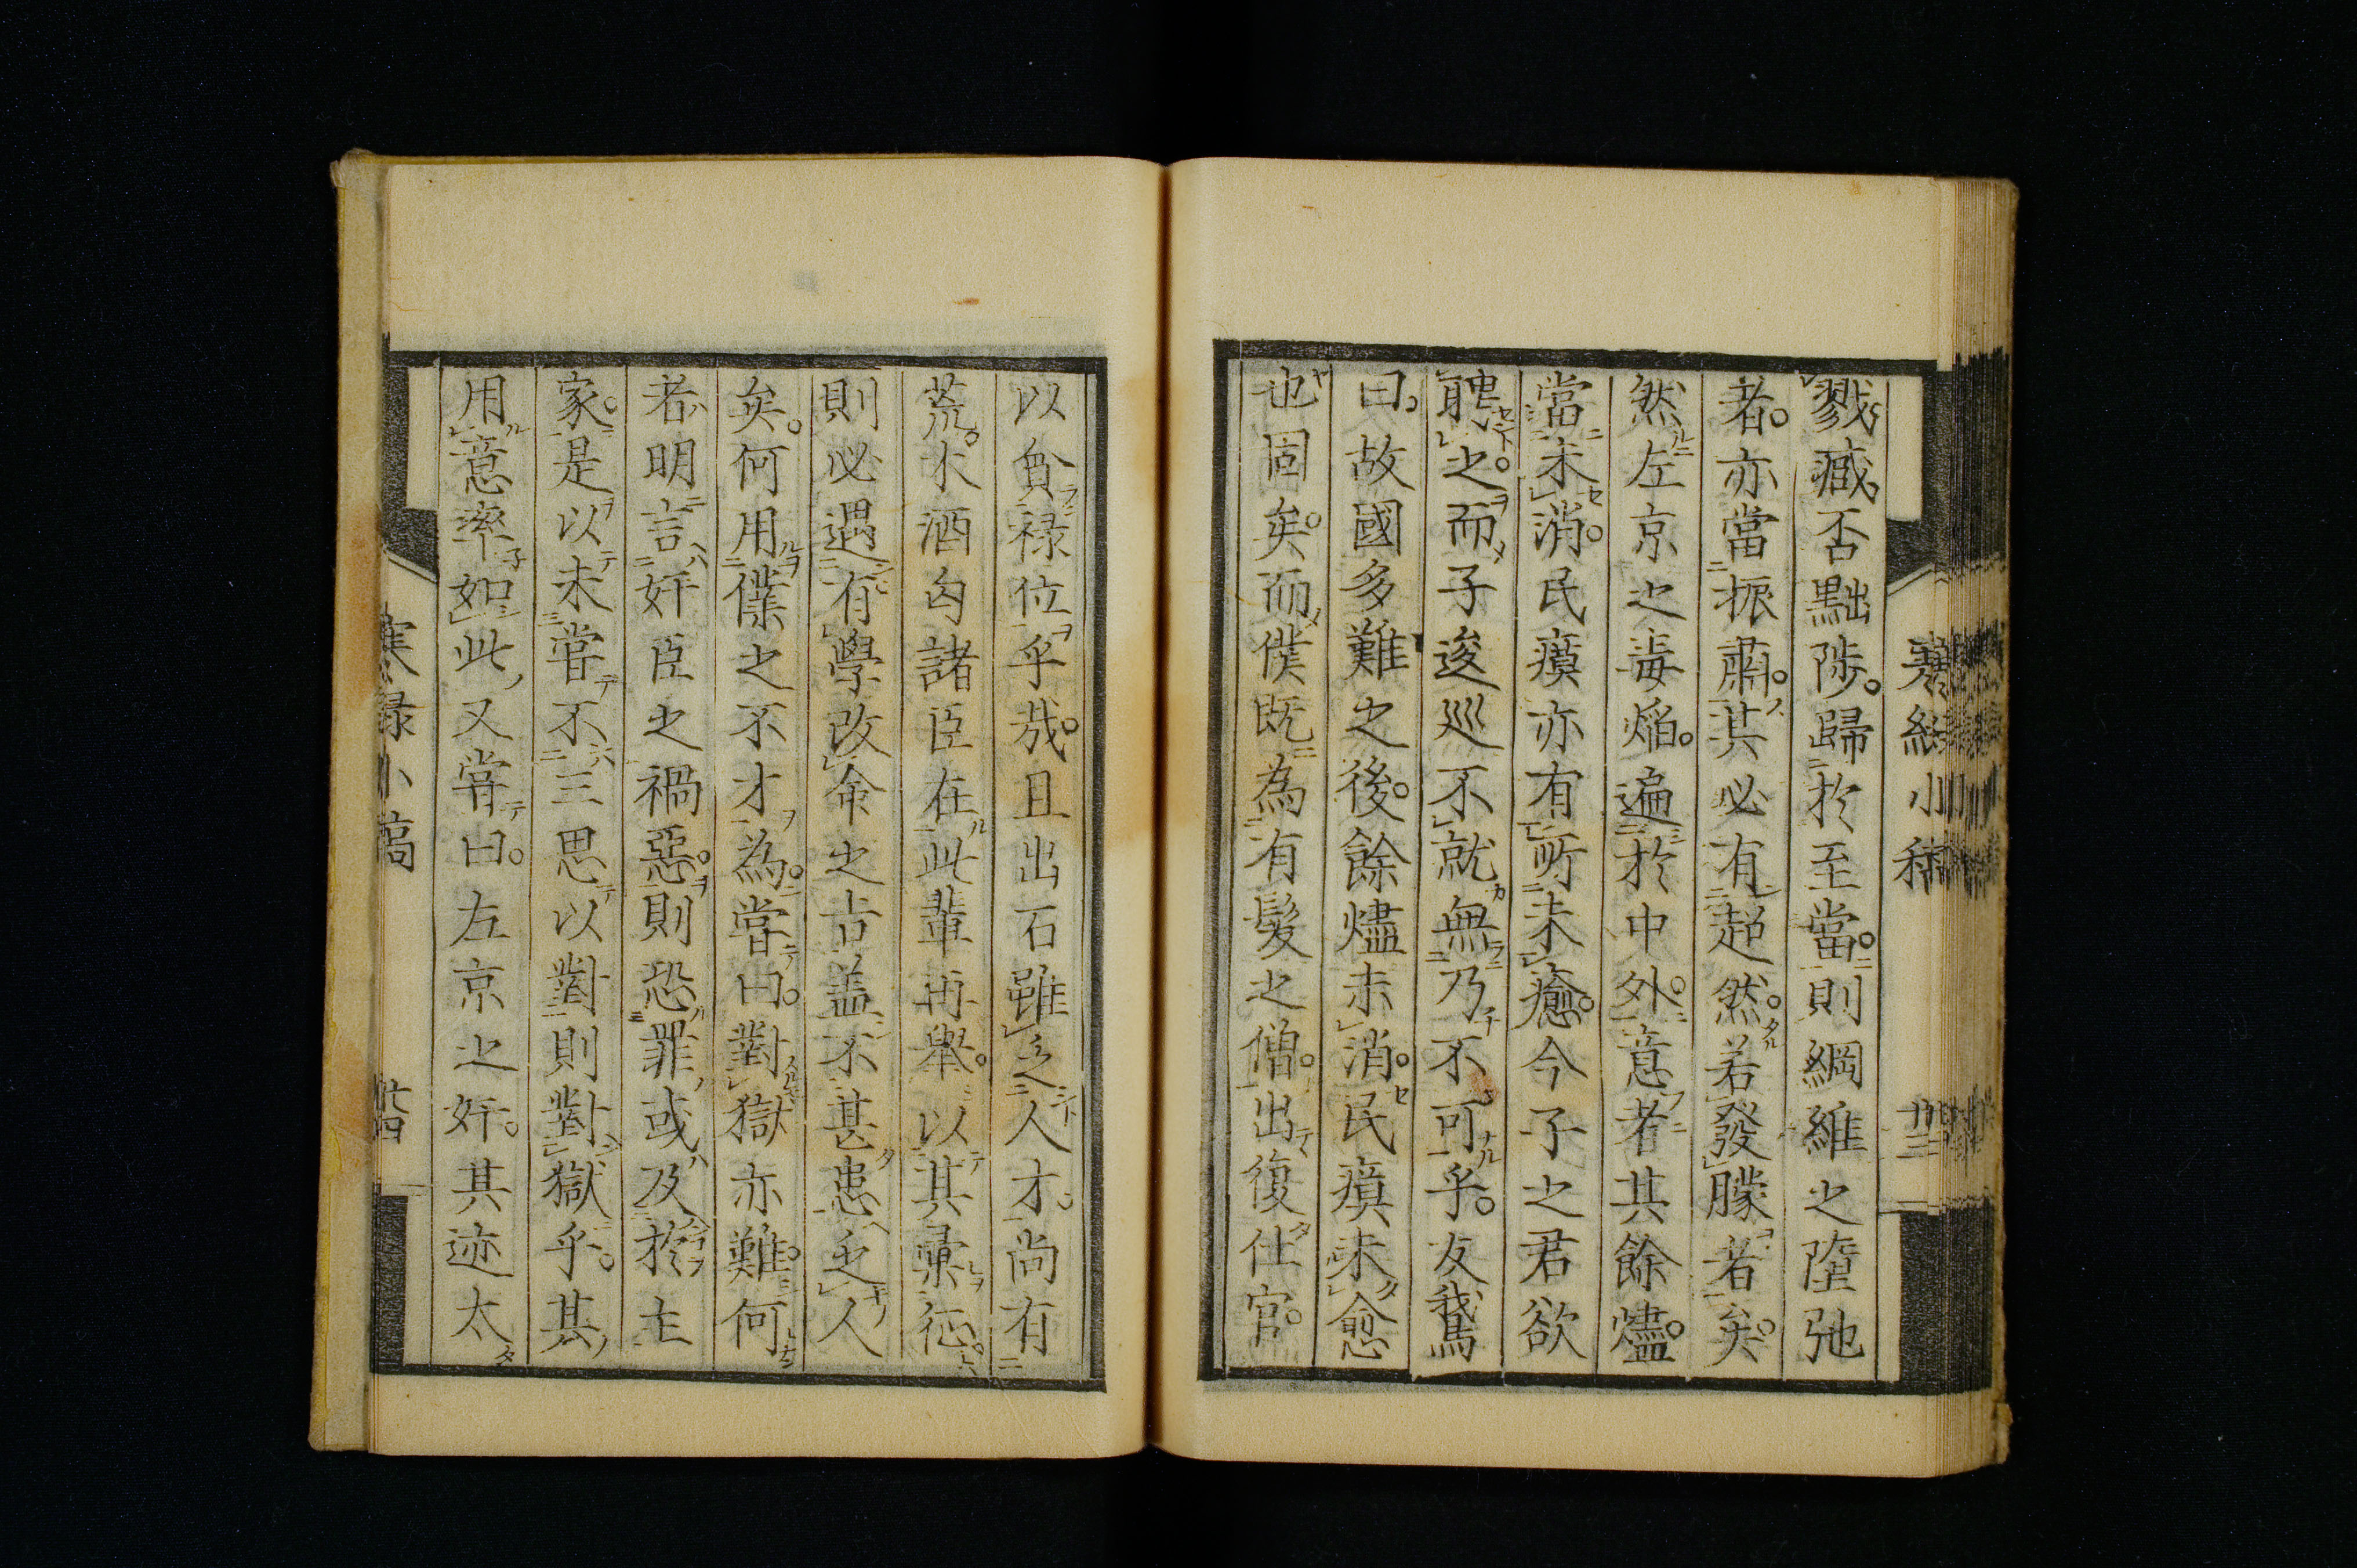 戮臧否黜陟歸於至當則綱維之墮弛
者亦當振肅其必有超然若發朦者矣
然左京之毒焔遍於中外意者其餘燼
當未消民瘼亦有所未癒今子之君欲
聘之而子逡巡不就無乃不可乎友鵞
曰故國多難之後餘燼未消民瘼未愈
也固矣而僕既為有髮之僧出復仕官
以負祿位乎哉且出石雖乏人才尚有
荒木酒匂諸臣在此輩再舉以其彙征
則必遇有學改命之吉盖不甚患乏人
矣何用僕之不才為嘗曰對獄亦難何
者明言奸臣之禍惡則恐罪或及於主
家是以未嘗不三思以對則對獄乎其
用意率如此又嘗曰左京之奸其迹太
寒綠小稿
廿三
寒綠小稿
廿四